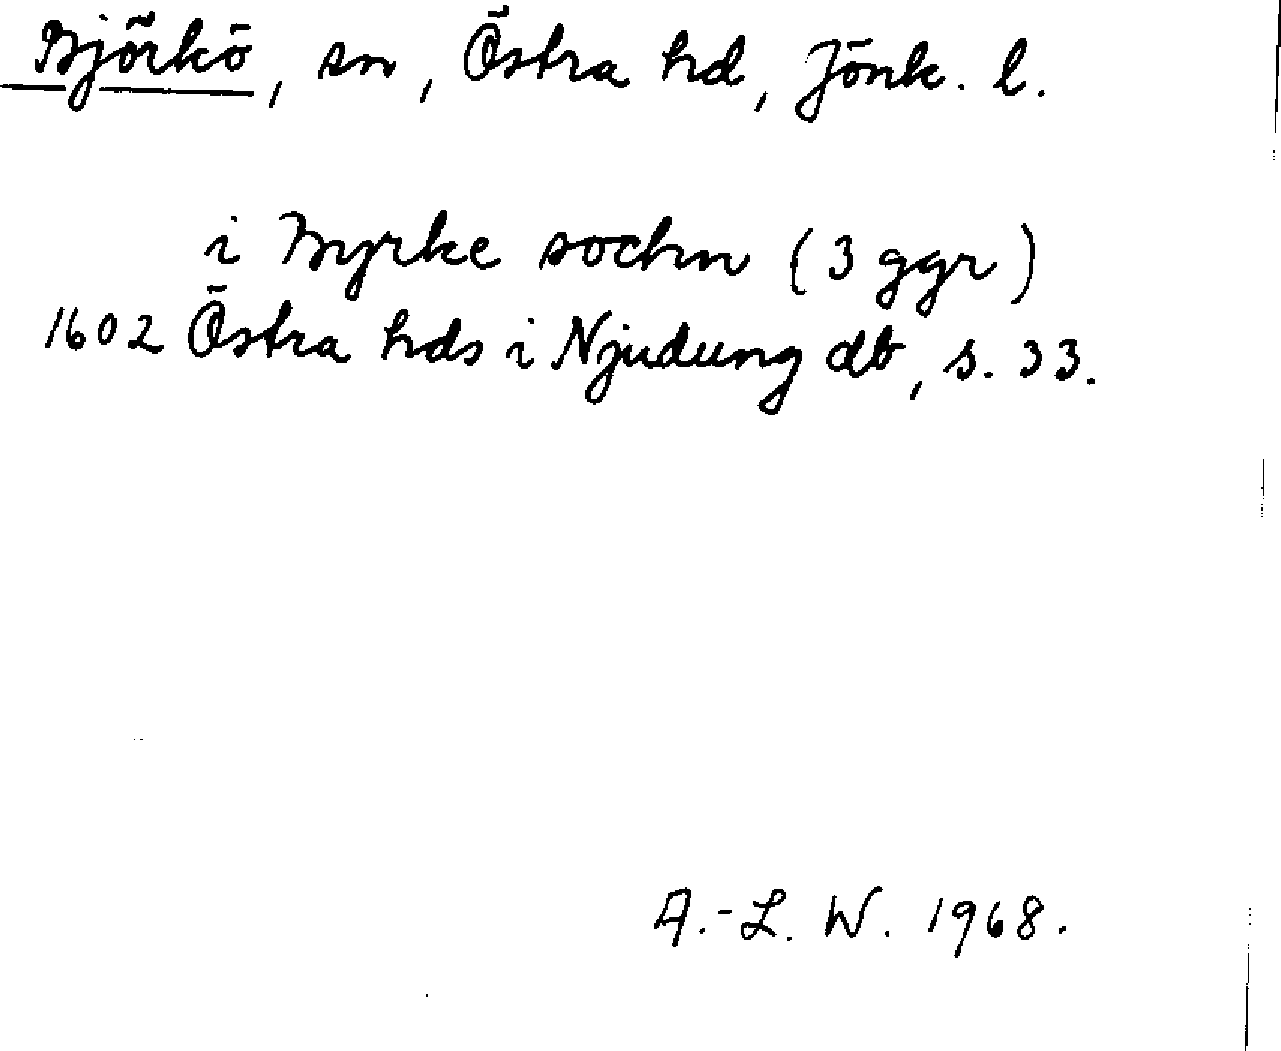 Björkö, sn, Östra hd, Jönk. l.
i Byrke sochn (3 ggr)
1602 Östra hds i Njudung db, s. 33.
A.-L. W. 1968.